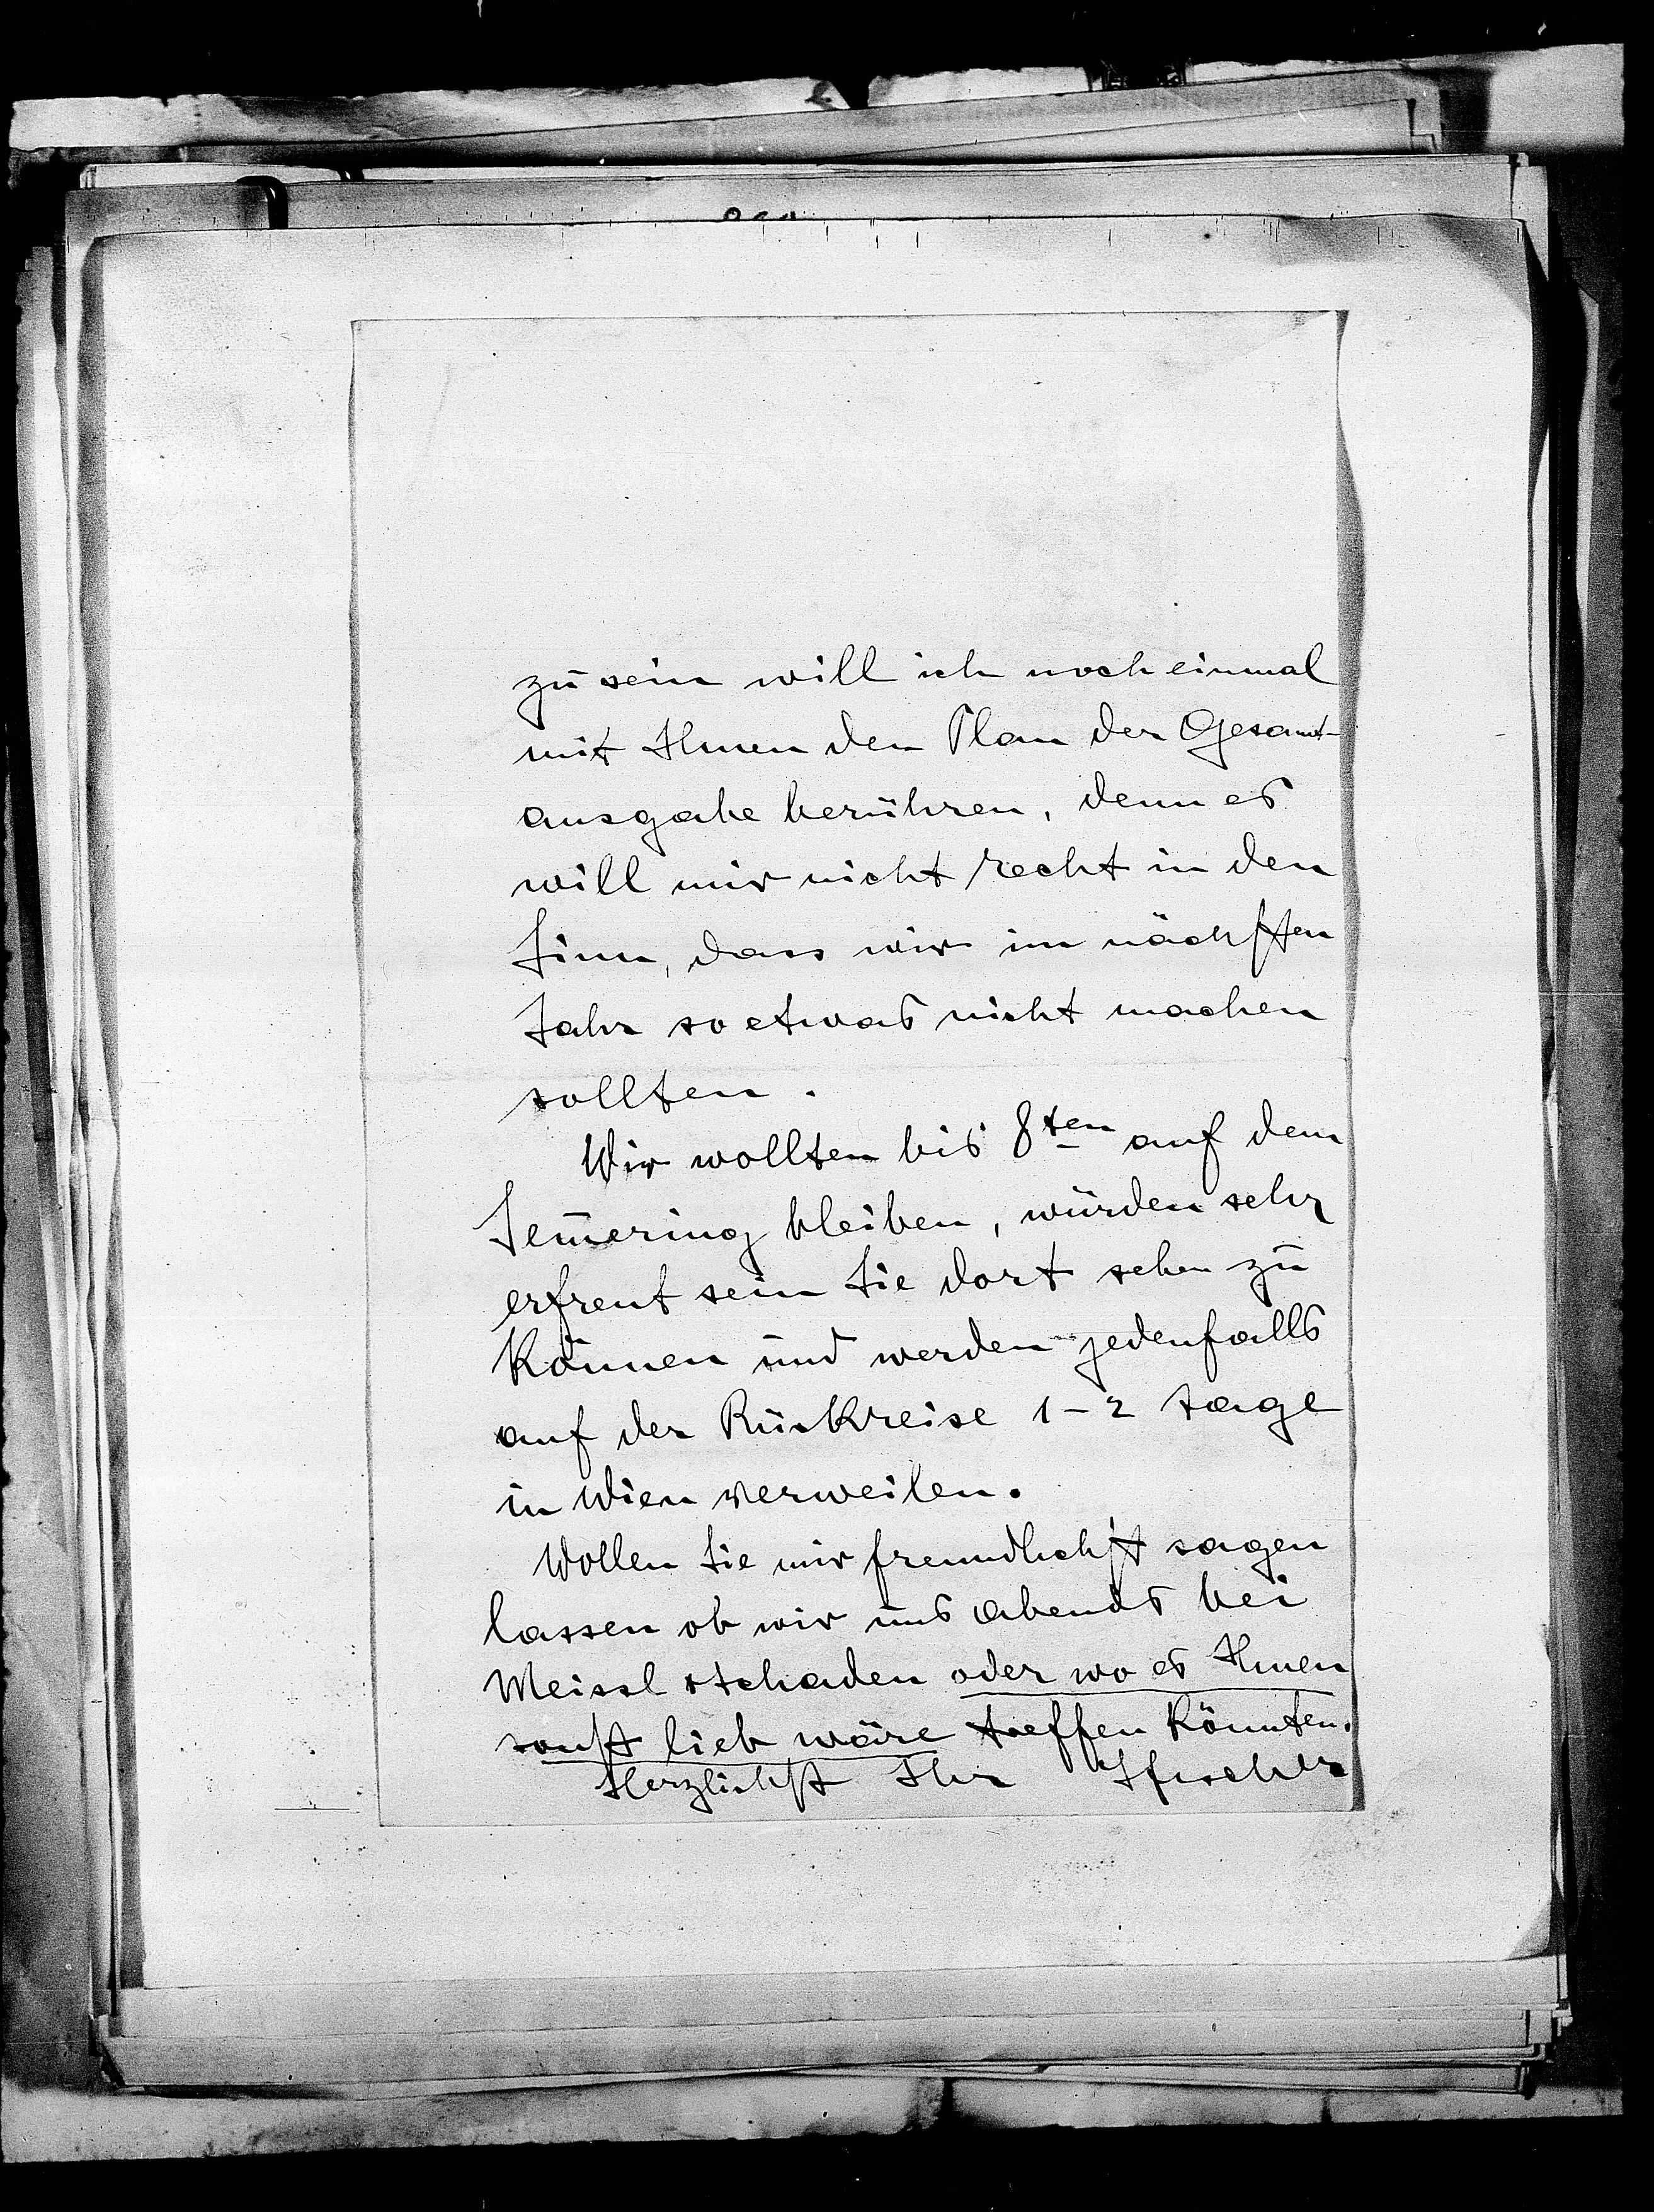 zu sein will ich noch einmal
mit Ihnen den Plan der Gesamt-
ausgabe berühren, denn es
will mir nicht recht in den
Sinn, dass wir im nächsten
Jahr so etwas nicht machen
sollten.
Wir wollten bis 8ten auf dem
Sem̄ering bleiben, würden sehr
erfreut sein Sie dort sehen zu
können und werden jedenfalls
auf der Rückreise 1-2 Tage
in Wien verweilen.
Wollen Sie mir freundlichst sagen
lassen ob wir uns abends bei
Meissl & Schaden oder wo es Ihnen
sonst lieb wäre treffen könnten.
Herzlichst Ihr SFischer